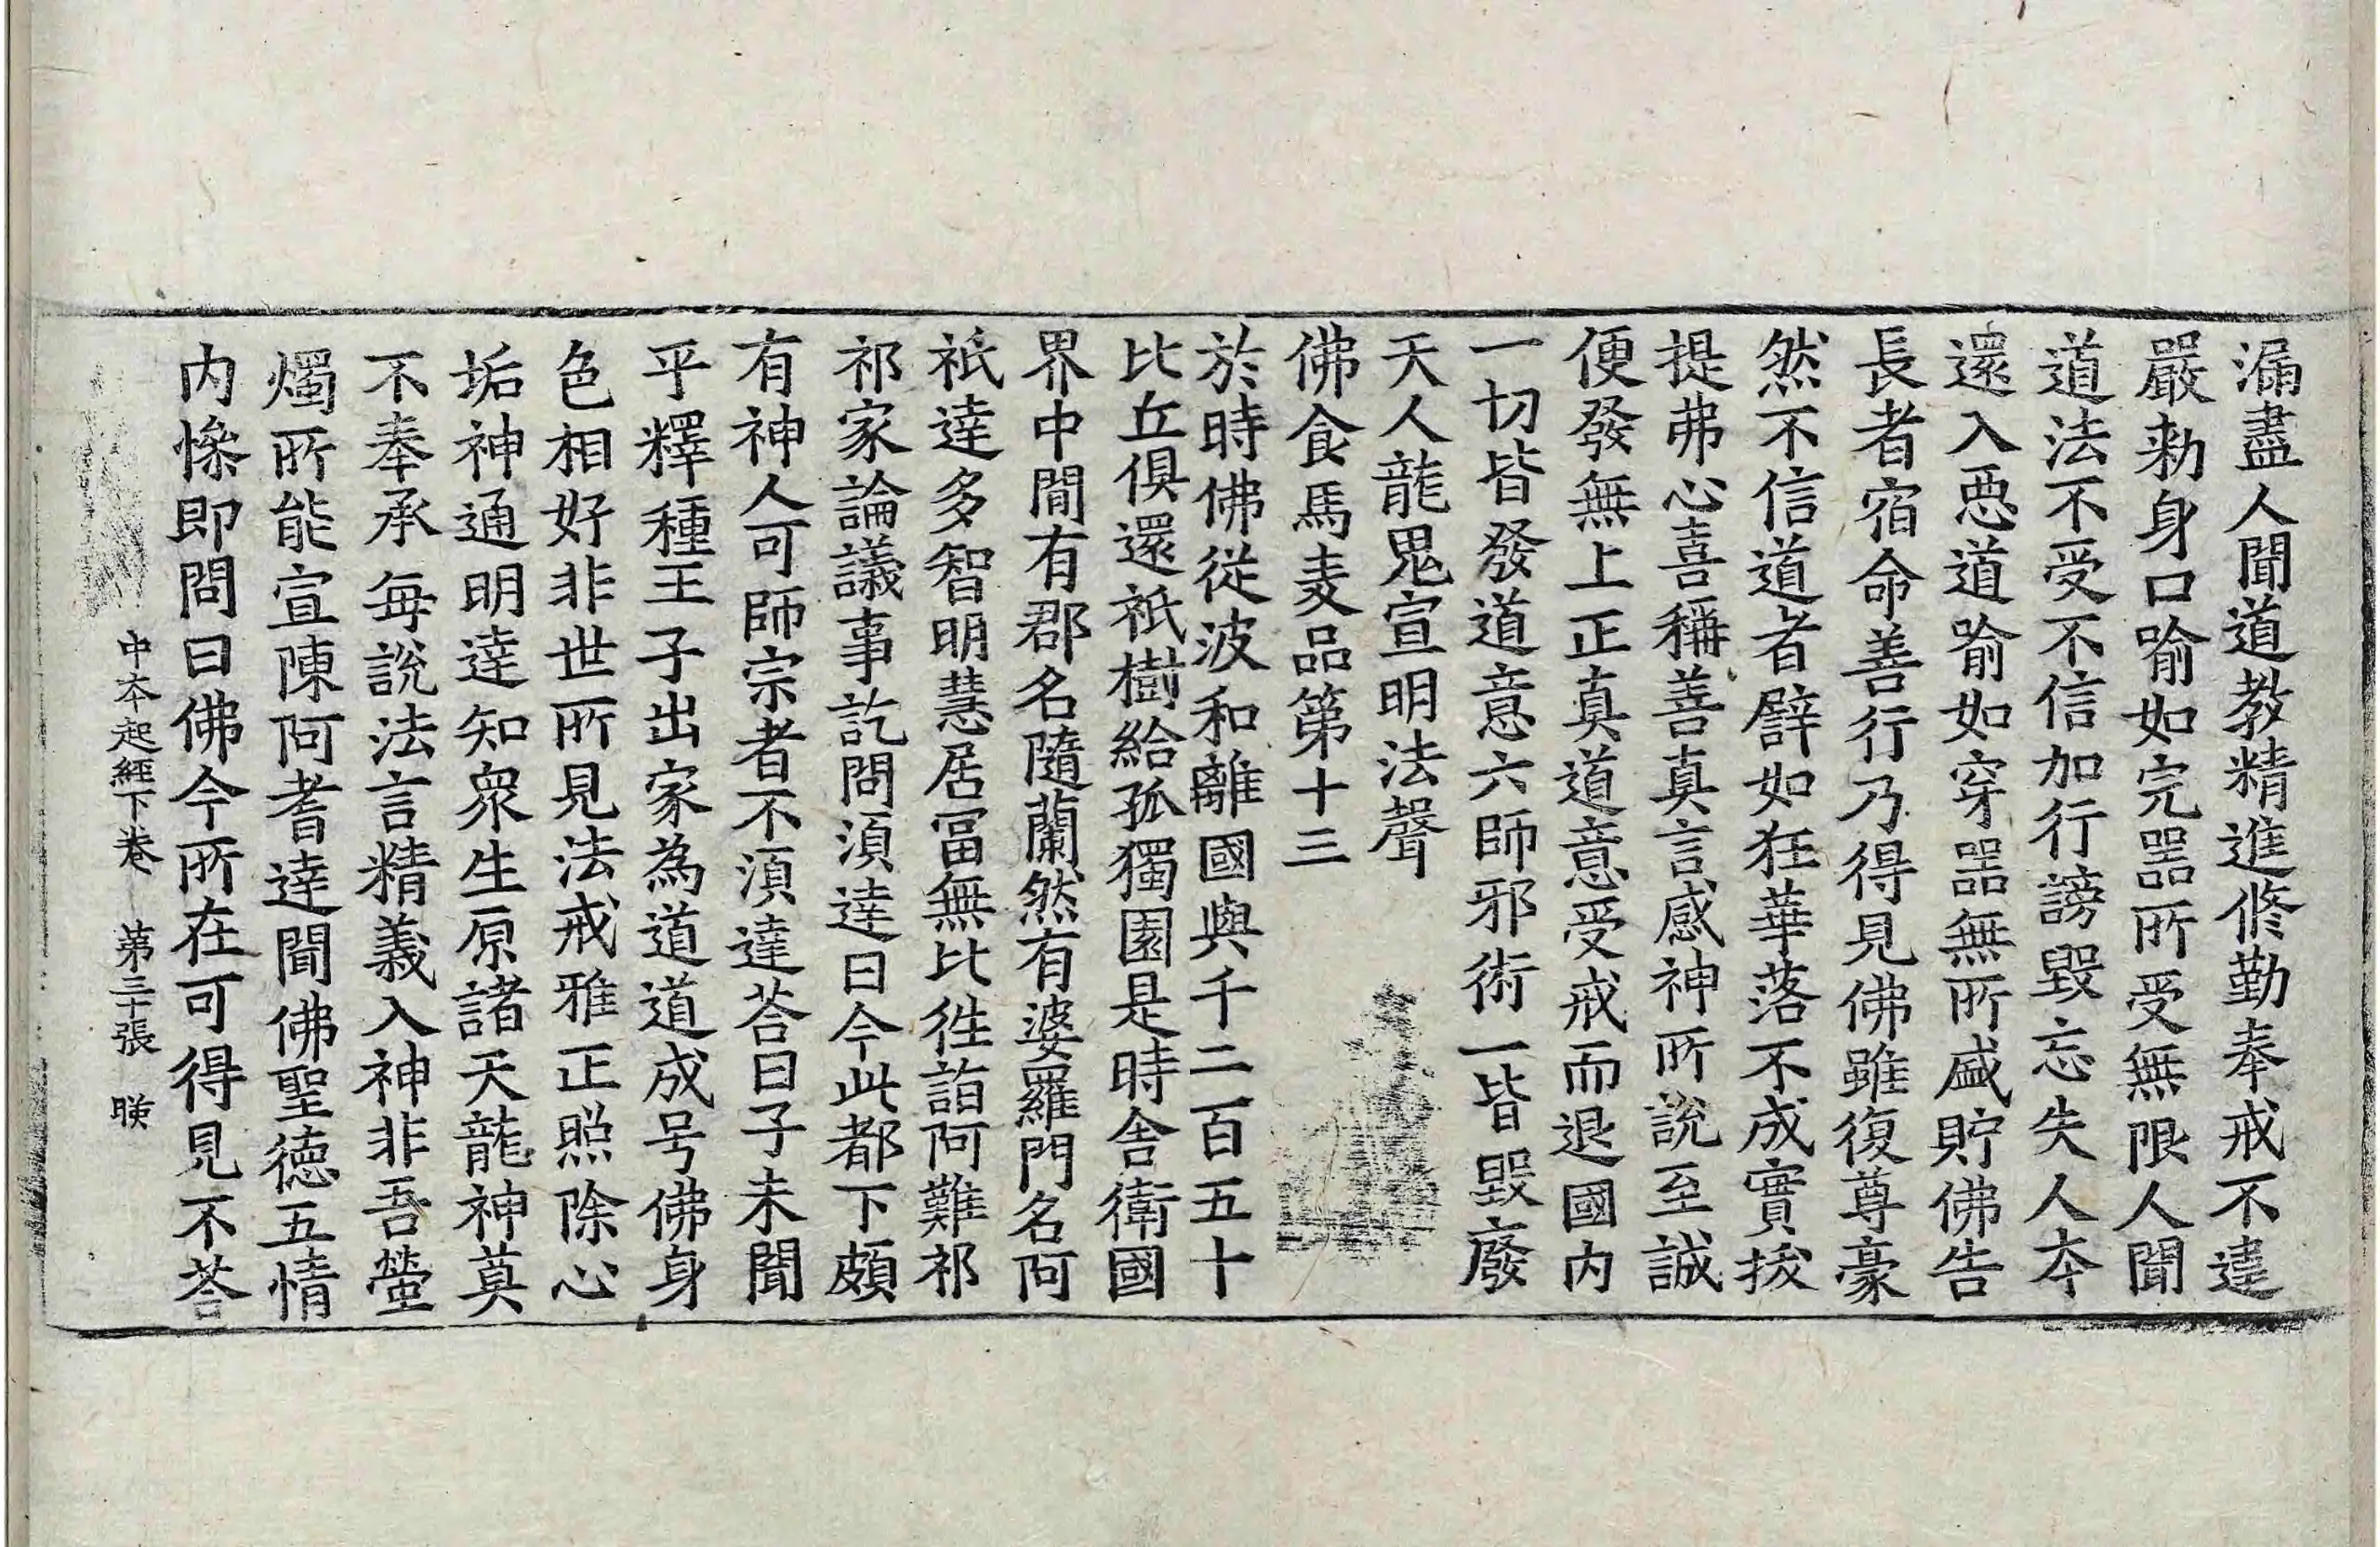 漏盡人聞道教精進修勤奉戒不違
嚴勑身口喻如完噐所受無限人聞
道法不受不信加行謗毀忘失人夲
還入惡道喻如穿噐無所盛貯佛告
長者宿命善行乃得見佛雖復尊豪
然不信道者譬如狂華落不成實捘
提弗心喜稱善真言感神所說至誠
便發無上正真道意受戒而退國内
一切皆發道意六師邪術一皆毀廢
天人龍鬼宣明法聲
佛食馬麦品第十三
於時佛從波和離國與千二百五十
比丘俱還祇樹給孤獨園是時舍衛國
界中閒有郡名隨蘭然有婆羅門名阿
祇達多智明慧居冨無比徃詣阿難祁
祁家論議事訖問湏達曰今此都下頗
有神人可師宗者不湏達荅曰子未聞
乎釋種王子出家為道道成号佛身
色相好非世所見法戒雅正照除心
垢神通明達知衆生原諸天龍神莫
不奉承每說法言精義入神非吾螢
燭所能宣陳阿耆達聞佛聖德五情
内慘即問曰佛今所在可得見不荅
中夲起經下卷　第三十張　暎